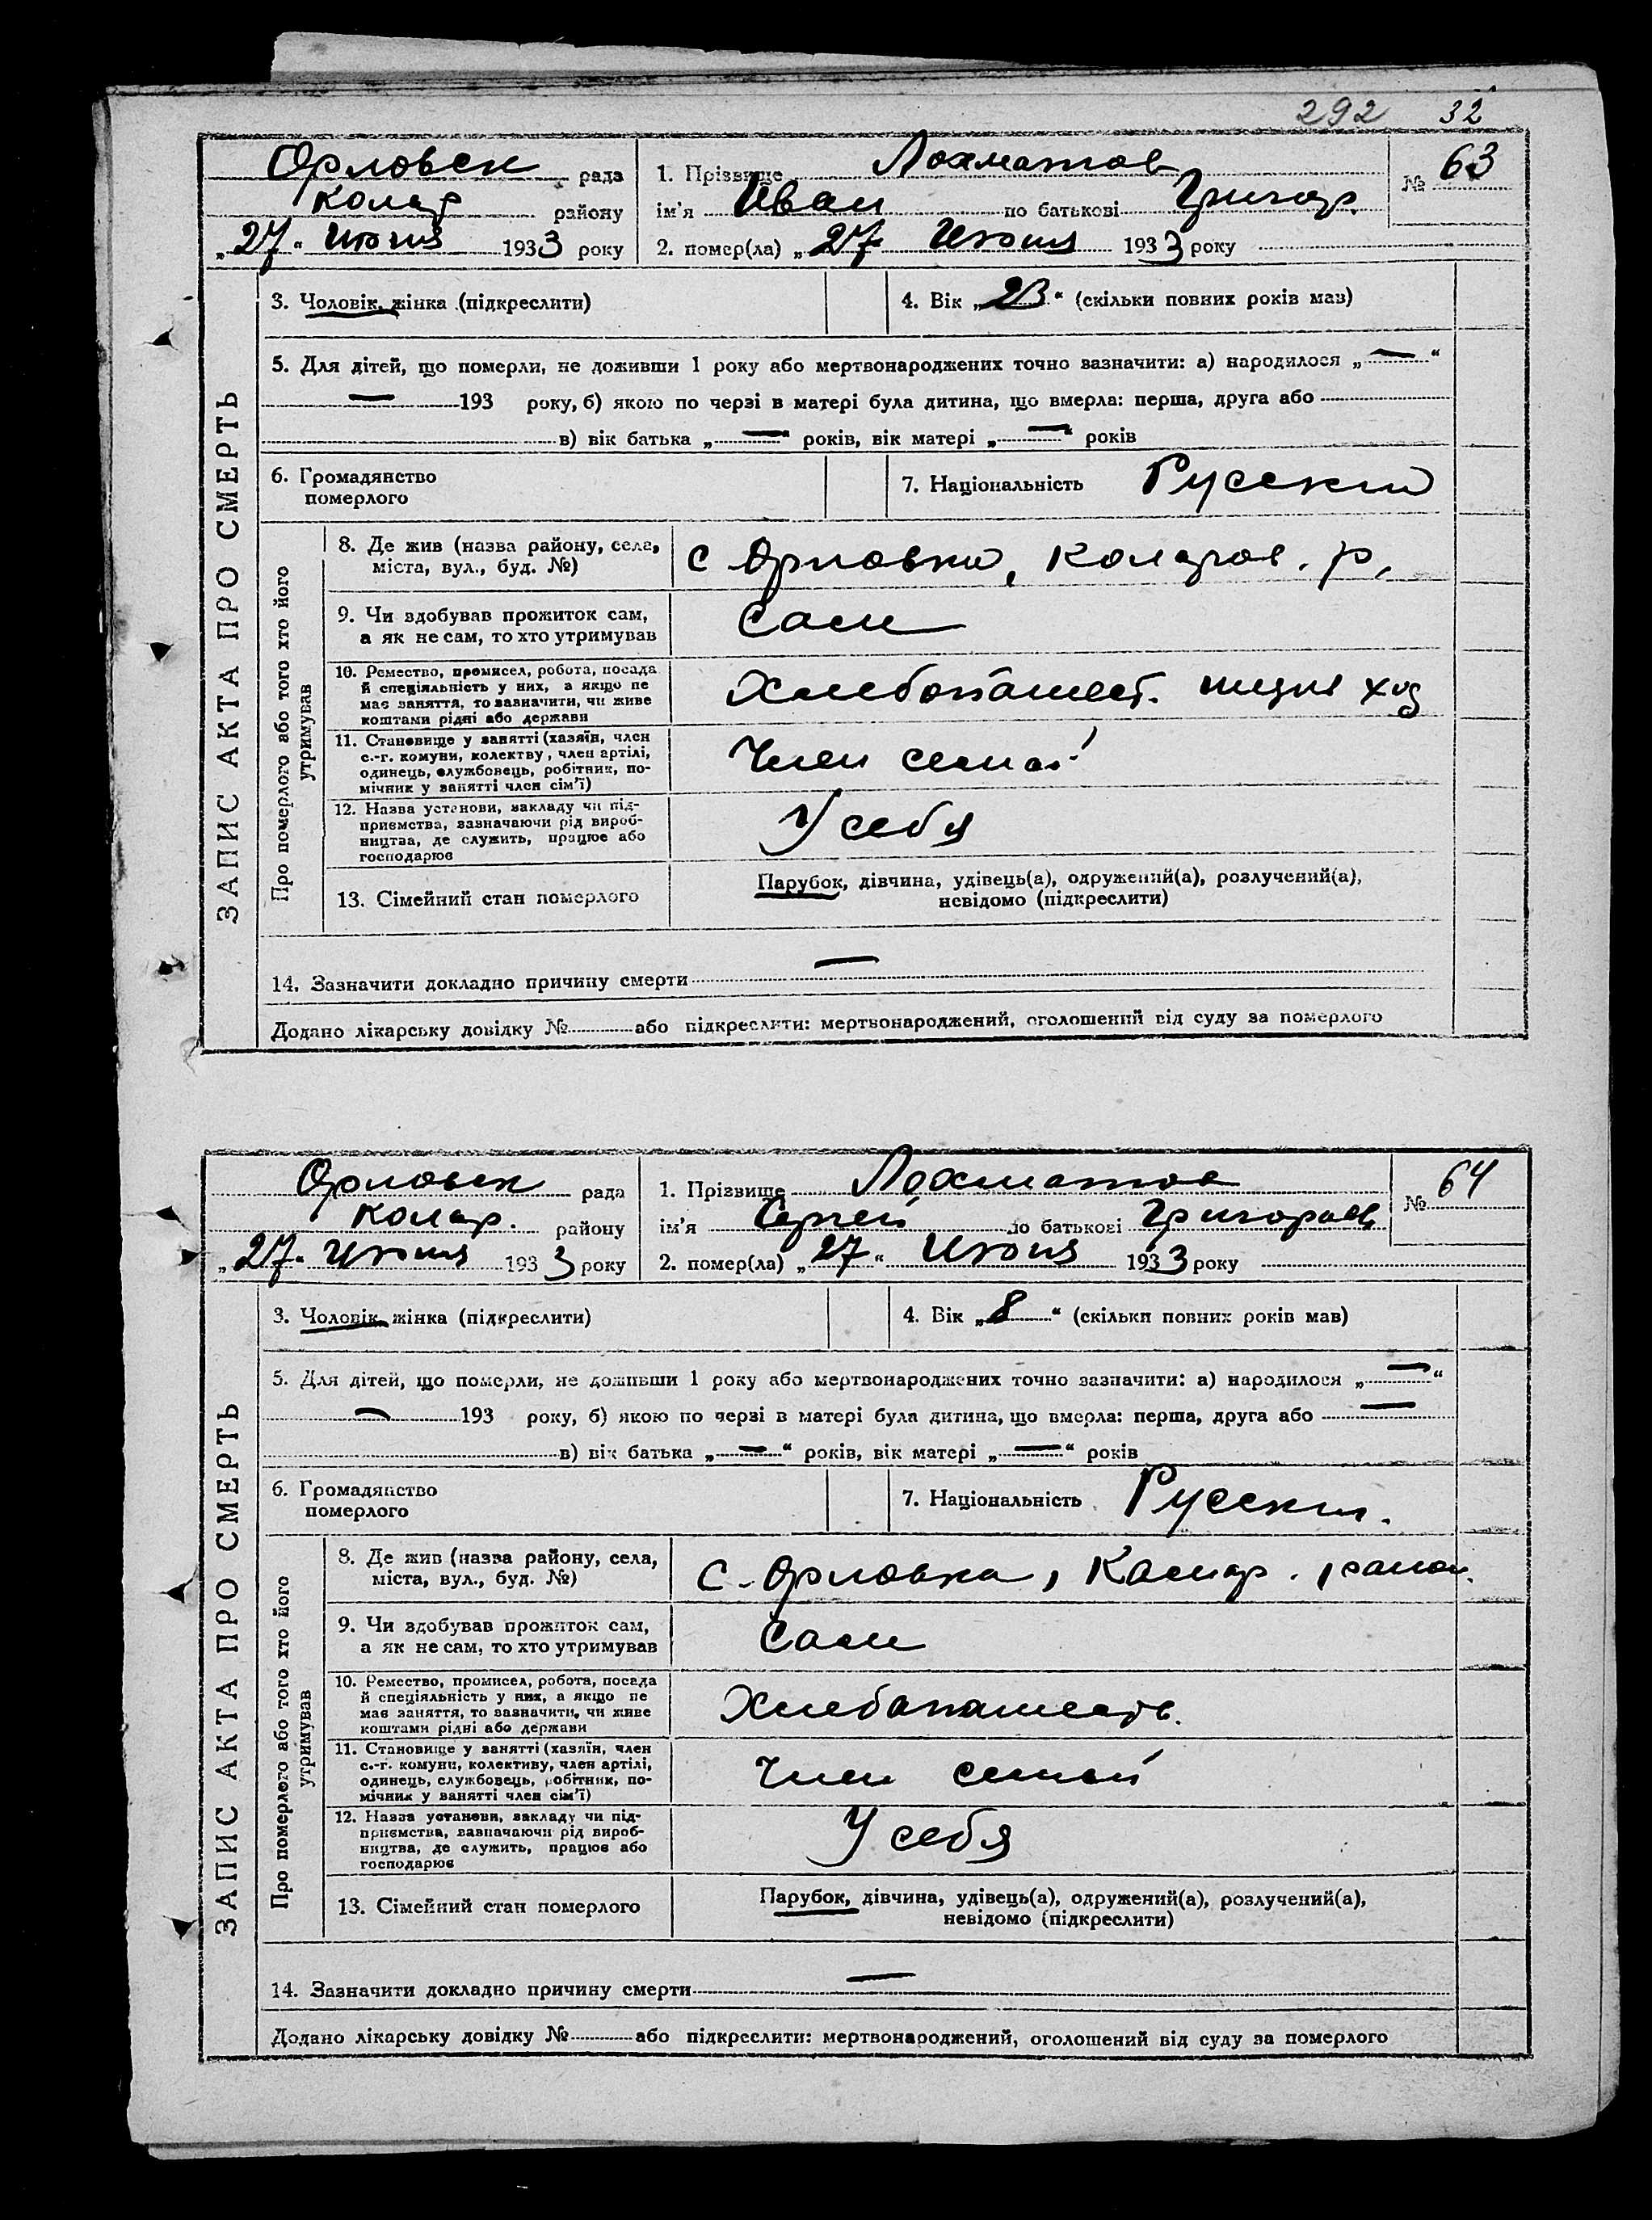 292 32
Орловск рада
Колар районy
„27“ Июня 1933 року
1. Прізвище Лохматов
ім'я Иван по батькові Григор.
2. помер(ла) „27“ Июня 1933 року
№ 63
ЗАПИС АКТА ПРО СМЕРТЬ
3. Чоловік, жінка (підкреслити)
4. Вік „23“ (скільки повних років мав)
5. Для дітей, що померли, не доживши 1 року або мертвонароджених точно зазначити: а) народилося „—“
— 193 року, б) якою по черзі в матері була дитина, що вмерла: перша, друга або
в) вік батька „—“ років, вік матері „—“ років
6. Громадянство
померлого
7. Національність Русский
Про померлого або того хто його
утримував
8. Де жив (назва району, села,
міста, вул., буд. №)
с Орловка, Коларов. р.
9. Чи здобував прожиток сам,
а як не сам, то хто утримував
Сам
10. Ремество, промисел, робота, посада
й спеціяльність у них, а якщо не
має заняття, то зазначити, чи живе
коштами рідні або держави
Хлебопашест.
11. Становище у занятті (хазяїн, член
с.-г. комуни, колектву, член артілі,
одинець, службовець, робітник, по-
мічник у занятті член сім'ї)
Член семьи
12. Назва установи, закладу чи під-
приємства, зазначаючи рід вироб-
ництва, де служить, працює або
господарює
У себя
13. Сімейний стан померлого
Парубок, дівчина, удівець(а), одружений(а), розлучений(а),
невідомо (підкреслити)
14. Зазначити докладно причину смерти —
Додано лікарську довідку № або підкреслити: мертвонароджений, оголошений від суду за померлого
Орловск рада
Колар. району
„27“ Июня 1933 року
1. Прізвище Лохматов
ім'я Сергей по батькові Григоров
2. помер(ла) „27“ Июня 1933 року
№ 64
ЗАПИС АКТА ПРО СМЕРТЬ
3. Чоловік, жінка (підкреслити)
4. Вік „8“ (скільки повних років мав)
5. Для дітей, що померли, не доживши 1 року або мертвонароджених точно зазначити: а) народилося „—“
— 193 року, б) якою по черзі в матері була дитина, що вмерла: перша, друга або —
в) вік батька „—“ років, вік матері „—“ років
6. Громадянство
померлого
7. Національність Русски.
Про померлого або того хто його
утримував
8. Де жив (назва району, села,
міста, вул., буд. №)
с. Орловка, Колар. район.
9. Чи здобував прожиток сам,
а як не сам, то хто утримував
Сам
10. Ремество, промисел, робота, посада
й спеціяльність у них, а якщо не
має заняття, то зазначити, чи живе
коштами рідні або держави
Хлебопашеств.
11. Становище у занятті (хазяїн, член
с.-г. комуни, колективу, член артілі,
одинець, службовець, робітник, по-
мічник у занятті член сім'ї)
Член семьи
12. Назва установи, закладу чи під-
приємства, зазначаючи рід вироб-
ництва, де служить, працює або
господарює
У себя
13. Сімейний стан померлого
Парубок, дівчина, удівець(а), одружений(а), розлучений(а),
невідомо (підкреслити)
14. Зазначити докладно причину смерти —
Додано лікарську довідку № або підкреслити: мертвонароджений, оголошений від суду за померлого